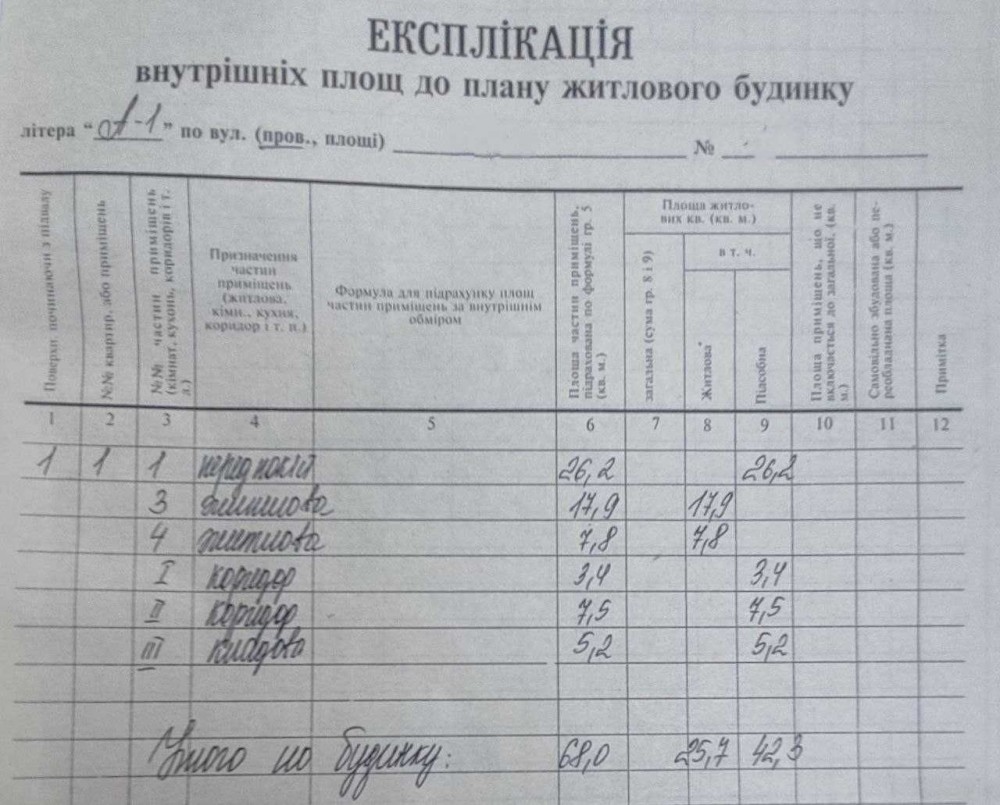 ЕКСПЛІКАЦІЯ
внутрішніх площ до плану житлового будинку
літера “А-1” по вул. (пров., площі) №
Поверхи, починаючи з підвалу
№№ квартир, або приміщень
№№ частин приміщень (кімнат, кухонь, коридорів і т. д.)
Призначення
частин
приміщень
(житлова,
кімн., кухня,
коридор і т. п.)
Формула для підрахунку площ
частин приміщень за внутрішнім
обміром
Площа частин приміщень, підрахована по формулі гр. 5 (кв. м.)
Площа житло-
вих кв. (кв. м.)
загальна (сума гр. 8 і 9)
в т. ч.
Житлова
Підсобна
Площа приміщень, що не включається до загальної. (кв. м.)
Самовільно збудована або пе-реобладнана площа (кв. м.)
Примітка
1 2 3 4 5 6 7 8 9 10 11 12
1 1 1 26,2 26,2
3 житлова 17,9 17,9
4 житлова 7,8 7,8
I коридор 3,4 3,4
II коридор 7,5 7,5
III кладова 5,2 5,2
по будинку: 68,0 25,7 42,3